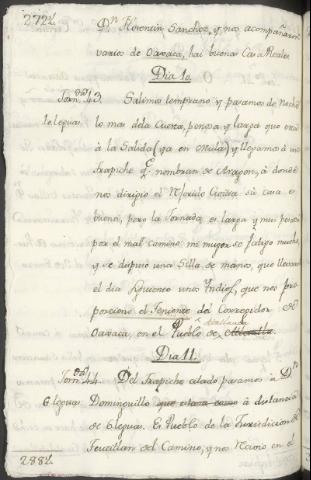 272½
Dn Florentin Sanchez, y nos acompañaron
varios de Oaxaca, hai buena Casa Reales
Dia 10.
Jorn.da 43. Salimos temprano y pasamos de Noche
lo mas dela Cuesta, penosa y larga que está
à la Salida (ya en Mula) y llegamos à un
Trapiche q.e nombran de Aragon, à donde
nos dirigio el
su casa es
bueno, pero la Jornada es larga y mui penosa
por el mal camino mi muger se fatigo mucho,
y se dispuso una Silla de manos, que llevaron
el dia siguiente unos Indios, que nos pro-
porciono el Teniente del Corregidor de
Oaxaca, en el Pueblo de
Dia 11.
Jorn.da 44. Del Trapiche citado pasamos à Dn
6 leguas. Dominguillo que estara como à distancia
de 6 leguas. Es Pueblo de la Jurisdicion de
Teutitlan del Camino, y no Nacio en el
288½